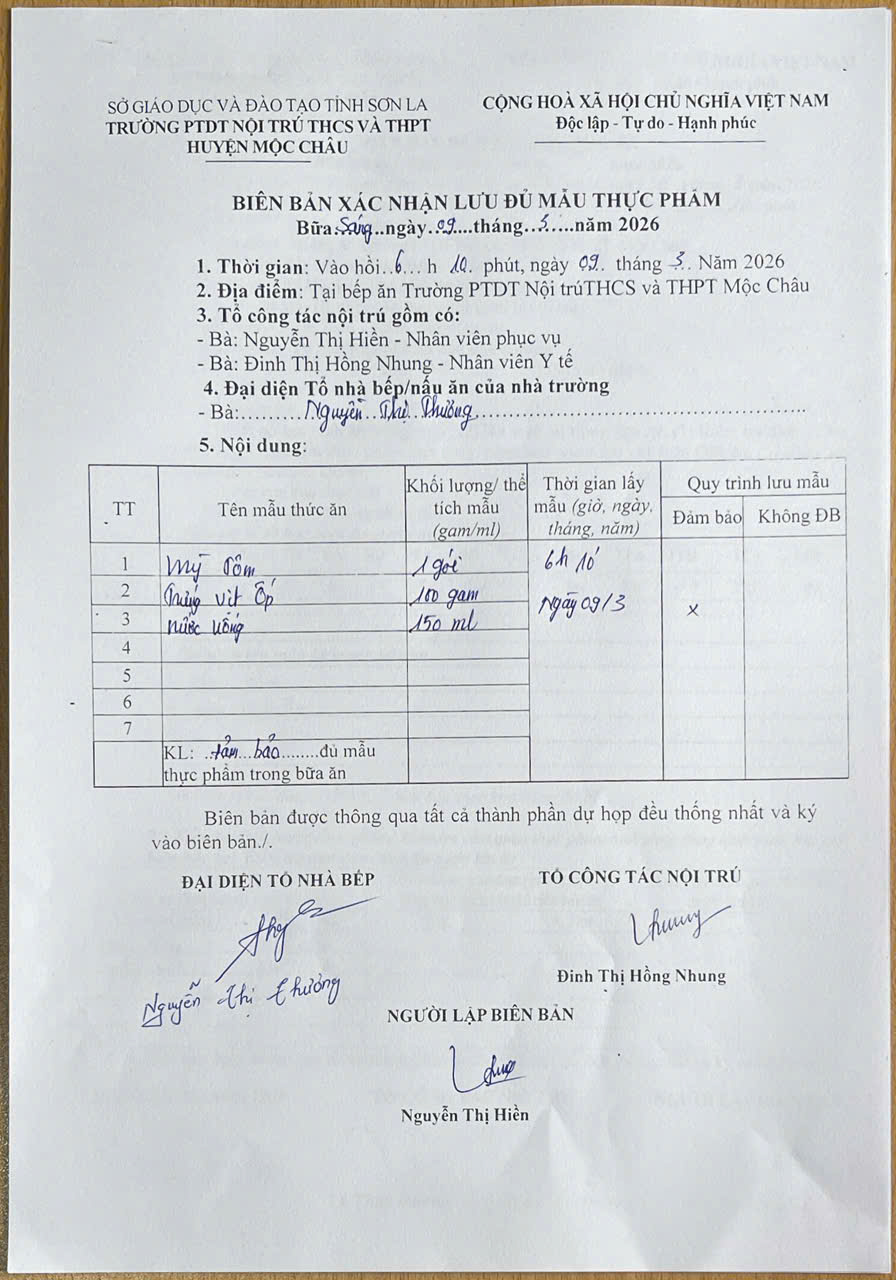 SỞ GIÁO DỤC VÀ ĐÀO TẠO TỈNH SƠN LA
TRƯỜNG PTDT NỘI TRÚ THCS VÀ THPT
HUYỆN MỘC CHÂU
CỘNG HOÀ XÃ HỘI CHỦ NGHĨA VIỆT NAM
Độc lập - Tự do - Hạnh phúc
BIÊN BẢN XÁC NHẬN LƯU ĐỦ MẪU THỰC PHẨM
Bữa: Sáng..ngày..09....tháng...3....năm 2026
1. Thời gian: Vào hồi..6... h 10. phút, ngày 09. tháng .3.. Năm 2026
2. Địa điểm: Tại bếp ăn Trường PTDT Nội trúTHCS và THPT Mộc Châu
3. Tổ công tác nội trú gồm có:
- Bà: Nguyễn Thị Hiền - Nhân viên phục vụ
- Bà: Đinh Thị Hồng Nhung - Nhân viên Y tế
4. Đại diện Tổ nhà bếp/nấu ăn của nhà trường
- Bà:.........Nguyễn..Thị..Thưởng...................................................
5. Nội dung:
TT Tên mẫu thức ăn Khối lượng/ thể tích mẫu (gam/ml) Thời gian lấy mẫu (giờ, ngày, tháng, năm) Quy trình lưu mẫu
Đảm bảo Không ĐB
1 Mỳ Tôm 1 gói 6h 10'
2 Trứng vịt Ốp 100 gam Ngày 09/3 x
3 Nước uống 150 ml
4
5
6
7
KL: ..đảm..bảo........đủ mẫu
thực phẩm trong bữa ăn
Biên bản được thông qua tất cả thành phần dự họp đều thống nhất và ký
vào biên bản./.
ĐẠI DIỆN TỔ NHÀ BẾP
TỔ CÔNG TÁC NỘI TRÚ
Nguyễn Thị Thưởng
Đinh Thị Hồng Nhung
NGƯỜI LẬP BIÊN BẢN
Nguyễn Thị Hiền